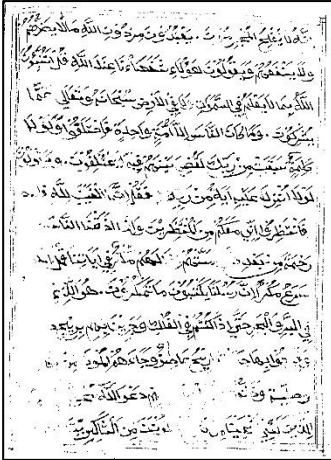 انه لا يفلح المجرمون ويعبدون من دون الله ما لا يضرهم
ولا ينفعهم ويقولون هؤلاء شفعاؤنا عند الله قل اتنبئون
الله بما لا يعلم في السموات ولا في الارض سبحانه وتعلى عما
يشركون وما كان الناس الا امة واحدة فاختلفوا ولولا
كلمة سبقت من ربك لقضي بينهم فيه يختلفون ويقولون
لولا انزل عليه اية من ربه فقل انما الغيب لله
فانتظروا اني معكم من المنتظرين واذا اذقنا الناس
رحمة من بعد مستهم لهم مكر في اياتنا قل الله
اسرع مكرا ان رسلنا يكتبون ما تمكرون هو الذي
في البر والبحر حتى اذا كنتم في الفلك وجرين بهم بريح
جاءتها ريح عاصف وجاءهم الموج من
دعوا الله
من الشاكرين